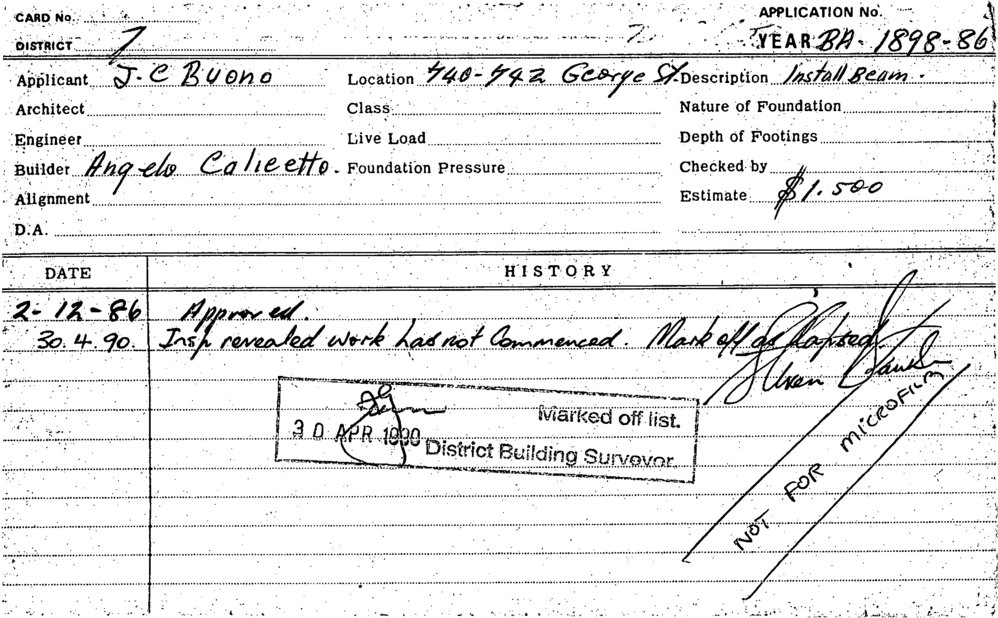 CARD No.
APPLICATION No.
DISTRICT 7 YEAR BA- 1898-86
Applicant J-C Buono Location 740-742 George St. Description Install Beam.
Architect Class Nature of Foundation
Engineer Live Load Depth of Footings
Builder Angelo Calicetto. Foundation Pressure Checked by
Alignment Estimate $1.500
D.A.
DATE HISTORY
2-12-86 Approved.
30.4.90. Insp revealed work has not Commenced. Mark off as elapsed.
Marked off list.
30 APR 1990 District Building Surveyor.
NOT FOR MICROFILM